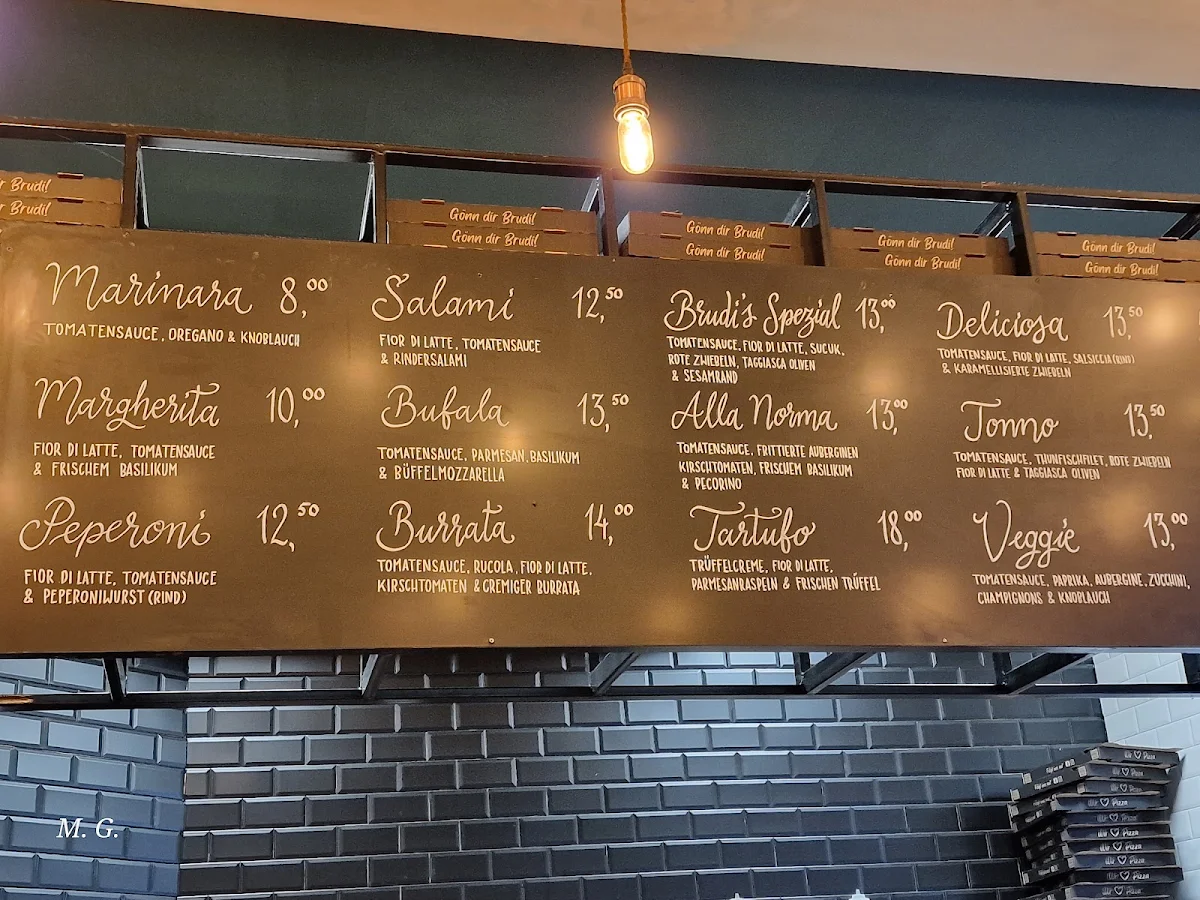 r Brudi!
r Brudi!
Gönn dir Brudi!
Gönn dir Brudi!
Gönn dir Brudi!
Gönn dir Brudi!
Gönn dir Brudi!
Gönn dir Brudi!
Gönn dir Brudi!
Gönn dir Brudi!
Marinara 8,00
TOMATENSAUCE, OREGANO & KNOBLAUCH
Margherita 10,00
FIOR DI LATTE, TOMATENSAUCE
& FRISCHEM BASILIKUM
Peperoni 12,50
FIOR DI LATTE, TOMATENSAUCE
& PEPERONIWURST (RIND)
Salami 12,50
FIOR DI LATTE, TOMATENSAUCE
& RINDERSALAMI
Bufala 13,50
TOMATENSAUCE, PARMESAN, BASILIKUM
& BÜFFELMOZZARELLA
Burrata 14,00
TOMATENSAUCE, RUCOLA, FIOR DI LATTE,
KIRSCHTOMATEN & CREMIGER BURRATA
Brudi's Spezial 13,00
TOMATENSAUCE, FIOR DI LATTE, SUCUK,
ROTE ZWIEBELN, TAGGIASCA OLIVEN
& SESAMRAND
Alla Norma 13,00
TOMATENSAUCE, FRITTIERTE AUBERGINEN
KIRSCHTOMATEN, FRISCHEM BASILIKUM
& PECORINO
Tartufo 18,00
TRÜFFELCREME, FIOR DI LATTE,
PARMESANRASPELN & FRISCHEN TRÜFFEL
Deliciosa 13,50
TOMATENSAUCE, FIOR DI LATTE, SALSICCIA (RIND)
& KARAMELLISIERTE ZWIEBELN
Tonno 13,50
TOMATENSAUCE, THUNFISCHFILET, ROTE ZWIEBELN
FIOR DI LATTE & TAGGIASCA OLIVEN
Veggie 13,00
TOMATENSAUCE, PAPRIKA, AUBERGINE, ZUCCHINI,
CHAMPIGNONS & KNOBLAUCH
Wir ♡ Pizza
Wir ♡ Pizza
Wir ♡ Pizza
Wir ♡ Pizza
Wir ♡ Pizza
Wir ♡ Pizza
Wir ♡ Pizza
Wir ♡ Pizza
Wir ♡ Pizza
M. G.